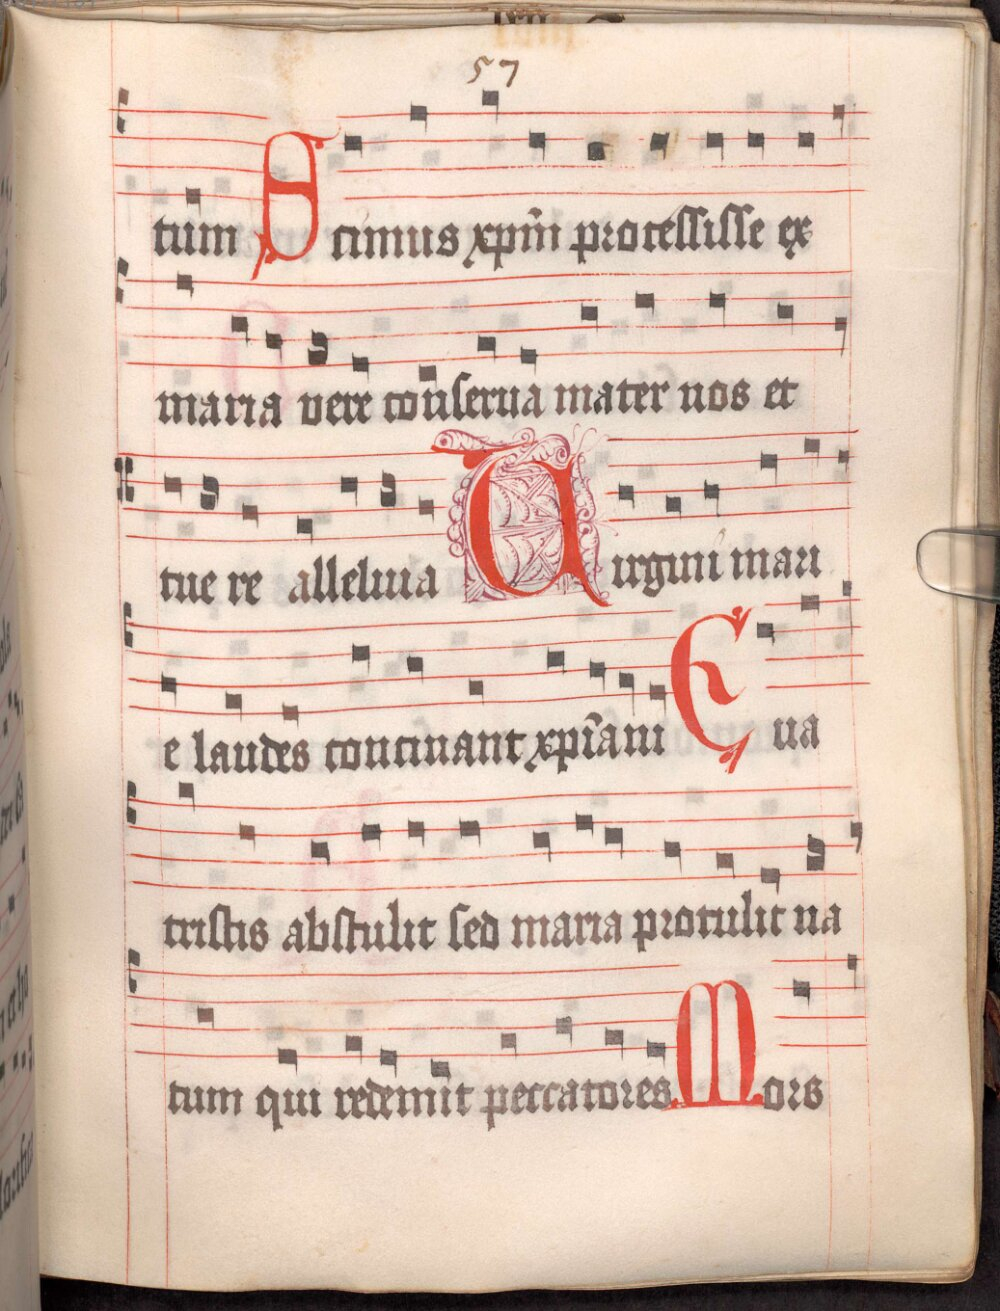 57
tum Scimus xp̄m processisse ex
maria vere conserua mater nos et
tue re alleluia Uirgini mari
e laudes concinant xp̄iani Eua
tristis abstulit sed maria protulit na
tum qui redemit peccatores Mors